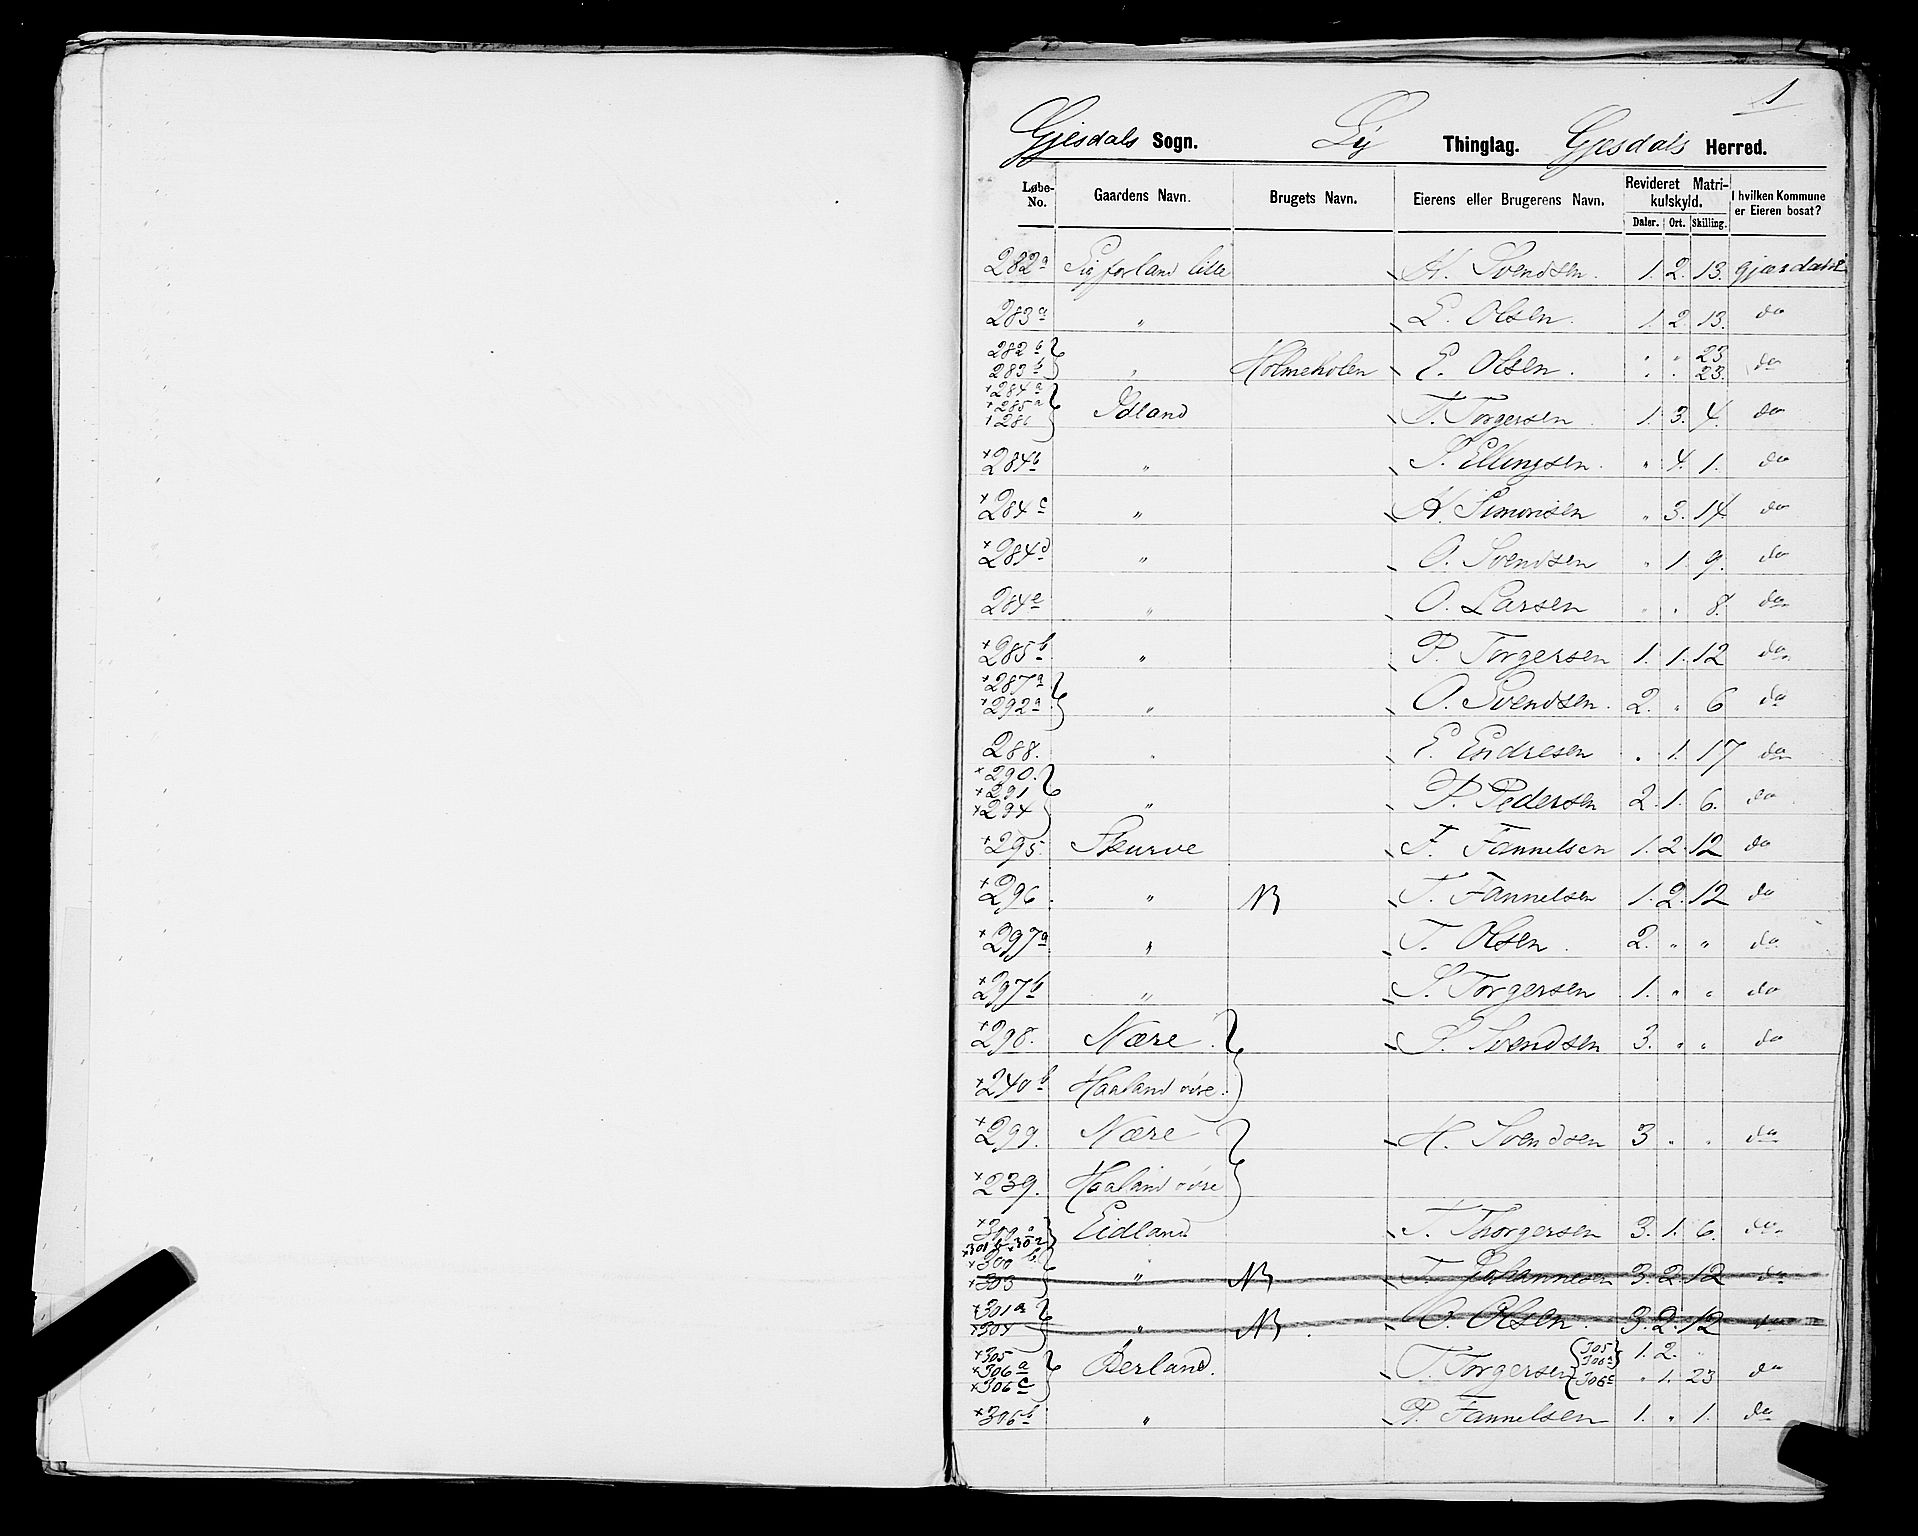 1
Gjesdals Sogn. Ly Thinglag. Gjesdals Herred.
Løbe-No. Gaardens Navn. Brugets Navn. Eierens eller Brugerens Navn. Revideret Matrikulskyld. Daler. Ort. Skilling. I hvilken Kommune er Eieren bosat?
282a Sigforland lille H. Svendsen. 1. 2. 13. Gjæsdalske
283a " E. Olsen. 1. 2. 13. do
282b 283b } " Holmeholen E. Olsen. " " 23. 23. do
+284a +285a +286 } Idland T. Torgersen 1. 3. 4. do
+284b " S. Ellingsen. " 4. 1. do
+284c " H. Simonsen " 3. 14 do
+284d " O. Svendsen " 1. 9. do
284e " O. Larsen " " 8. do
+285b " P. Torgersen 1. 1. 12 do
+287a +292a } " O. Svendsen. 2. " 6 do
288. " E. Endresen " 1. 17 do
+290. +291 +294 } " P. Pedersen 2. 1. 6. do
+295. Skurve F. Fannelsen 1. 2. 12 do
+296 " NB T. Fannelsen 1. 2. 12 do
+297a " T. Olsen. 2. " " do
+297b " S. Torgersen 1. " " do
+298. Nære. } S. Svendsen 3. " " do
+240b Haaland øvre.
+299. Nære } H. Svendsen 3 " " do
+239. Haaland øvre
+300a +301b +302 } Eidland T. Thorgersen 3. 1. 6. do
+300b +303 } " NB T. Johannesen 3. 2. 12 do
+301a +304 } " NB. O. Olsen. 3. 2. 12 do
+305 +306a +306c } Berland. T. Torgersen {305 306a} 1. 2. " {306c " 1. 23 do
+306b " P. Fannelsen 1. " 1. do